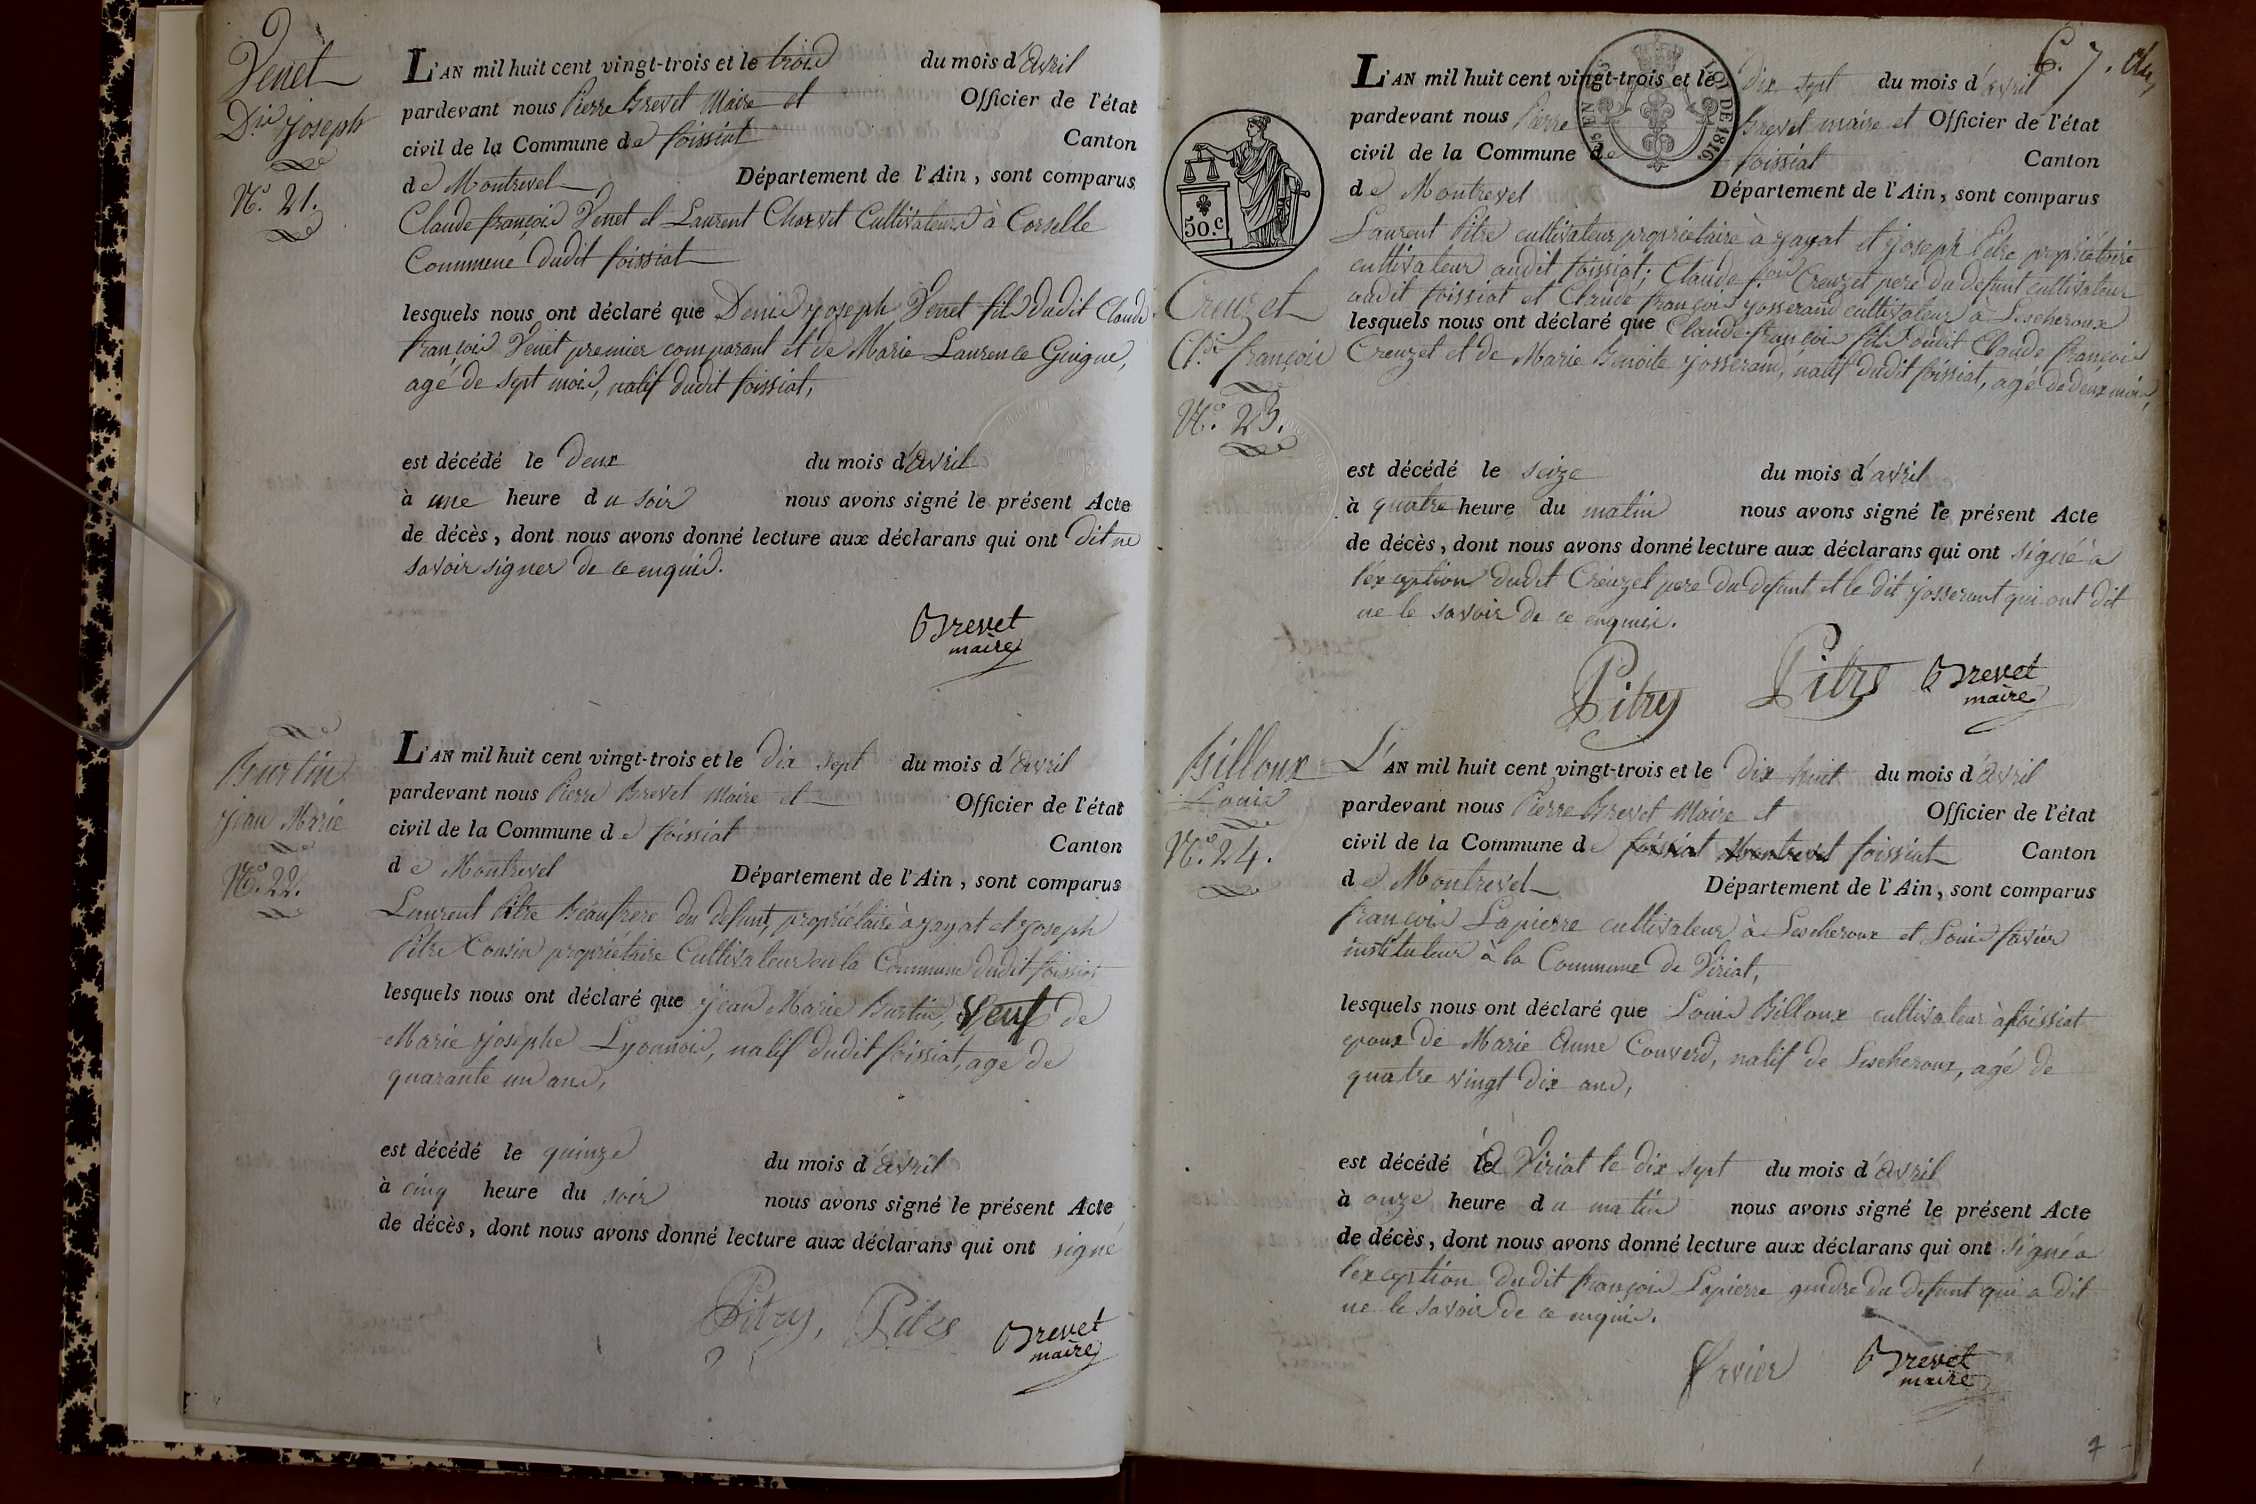 Venet
Dis Joseph
N.° 21.
L'AN mil huit cent vingt-trois et le trois du mois d'Avril
pardevant nous Pierre Brevet Maire et Officier de l'état
civil de la Commune de foissiat Canton
de Montrevel Département de l'Ain, sont comparus
Claude françois Venet et Laurent Charvet Cultivateurs à Corselle
Commune dudit foissiat
lesquels nous ont déclaré que Denis Joseph Venet fils dudit Claude
françois Venet premier comparant et de Marie Laurence Guigue,
agé de sept mois, natif dudit foissiat,
est décédé le deux du mois d'Avril
à une heure du soir nous avons signé le présent Acte
de décès, dont nous avons donné lecture aux déclarans qui ont dit ne
savoir signer de ce enquis.
Brevet
maire
Burtin
Jean Marie
N.° 22.
L'AN mil huit cent vingt-trois et le dix sept du mois d'Avril
pardevant nous Pierre Brevet Maire et Officier de l'état
civil de la Commune de foissiat Canton
de Montrevel Département de l'Ain, sont comparus
Laurent Pitre Beaufrere du defunt, propriétaire à Jayat et Joseph
Pitre Cousin propriétaire Cultivateur en la Commune dudit foissiat
lesquels nous ont déclaré que Jean Marie Burtin, Veuf de
Marie Josephe Lyonnois, natif dudit foissiat, age de
quarante un ans,
est décédé le quinze du mois d'Avril
à cinq heure du soir nous avons signé le présent Acte
de décès, dont nous avons donné lecture aux déclarans qui ont signé
Pitre, Pitre Brevet
maire
C. 7.
LOI DE 1816
50.c
Creuzet
Cl.de françois
N.° 23.
L'AN mil huit cent vingt-trois et le dix sept du mois d'avril
pardevant nous Pierre Brevet maire et Officier de l'état
civil de la Commune de foissiat Canton
de Montrevel Département de l'Ain, sont comparus
Laurent Pitre cultivateur propriétaire à Jayat et Joseph Pitre propriétaire
cultivateur audit foissiat; Claude f.ois Creuzet pere du defunt cultivateur
audit foissiat et Claude françois Josserand cultivateur à Lescheroux
lesquels nous ont déclaré que Claude françois fils dudit Claude françois
Creuzet et de Marie Benoite Josserand, natif dudit foissiat, agé de deux mois,
est décédé le seize du mois d'avril
à quatre heure du matin nous avons signé le présent Acte
de décès, dont nous avons donné lecture aux déclarans qui ont signé à
l'exception dudit Creuzet pere du defunt et le dit Josserant qui ont dit
ne le savoir de ce enquis.
Pitre Pitre Brevet
maire
Billoux
Louis
N.° 24.
L'AN mil huit cent vingt-trois et le dix huit du mois d'Avril
pardevant nous Pierre Brevet Maire et Officier de l'état
civil de la Commune de foissiat Montrevel foissiat Canton
de Montrevel Département de l'Ain, sont comparus
françois Lapierre cultivateur à Lescheroux et Louis favier
instituteur à la Commune de Viriat,
lesquels nous ont déclaré que Louis Billoux cultivateur à foissiat
epoux de Marie Anne Couverd, natif de Lescheroux, agé de
quatre vingt dix ans,
est décédé le A Viriat le dix sept du mois d'Avril
à onze heure du matin nous avons signé le présent Acte
de décès, dont nous avons donné lecture aux déclarans qui ont signé a
l'exception dudit françois Lapierre gendre du defunt qui a dit
ne le savoir de ce enquis.
favier Brevet
maire
7